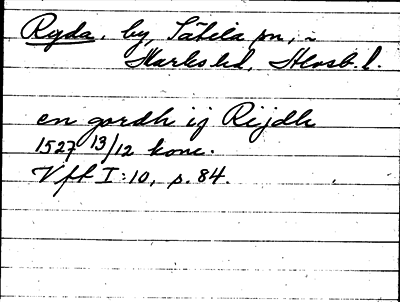 Ryda, by, Sätila sn, ~
Marks hd, Älvsb. l.
en gordh ij Rijdh
1527 13/12 konc.
Vfh I:10, p. 84.